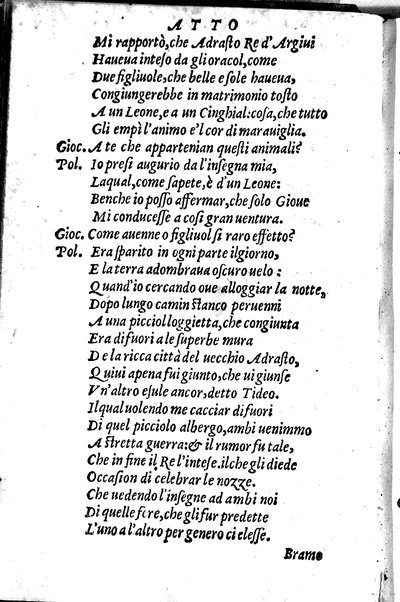 ATTO
Mi rapportò, che Adraſto Re d'Argiui
Haueua inteſo da gli oracol, come
Due figliuole, che belle e ſole haueua,
Congiungerebbe in matrimonio toſto
A un Leone, e a un Cinghial: coſa, che tutto
Gli empì l'animo e'l cor di marauiglia.
Gioc. A te che appartenian queſti animali?
Pol. Io preſi augurio da l'inſegna mia,
Laqual, come ſapete, è d'un Leone:
Benche io poſſo affermar, che ſolo Gioue
Mi conduceſſe a coſi gran uentura.
Gioc. Come auenne o figliuol ſi raro effetto?
Pol. Era ſparito in ogni parte il giorno,
E la terra adombraua oſcuro uelo:
Quand'io cercando oue alloggiar la notte,
Dopo lungo camin ſtanco peruenni
A una picciol loggietta, che congiunta
Era di fuori a le ſuperbe mura
De la ricca città del uecchio Adraſto,
Quiui apena fui giunto, che ui giunſe
Vn'altro eſule ancor, detto Tideo.
Il qual uolendo me cacciar di fuori
Di quel picciolo albergo, ambi uenimmo
A ſtretta guerra: & il rumor fu tale,
Che in fine il Re l'inteſe. ilche gli diede
Occaſion di celebrar le nozze.
Che uedendo l'inſegne ad ambi noi
Di quelle fere, che gli fur predette
L'uno a l'altro per genero ci eleſſe.
Bramo